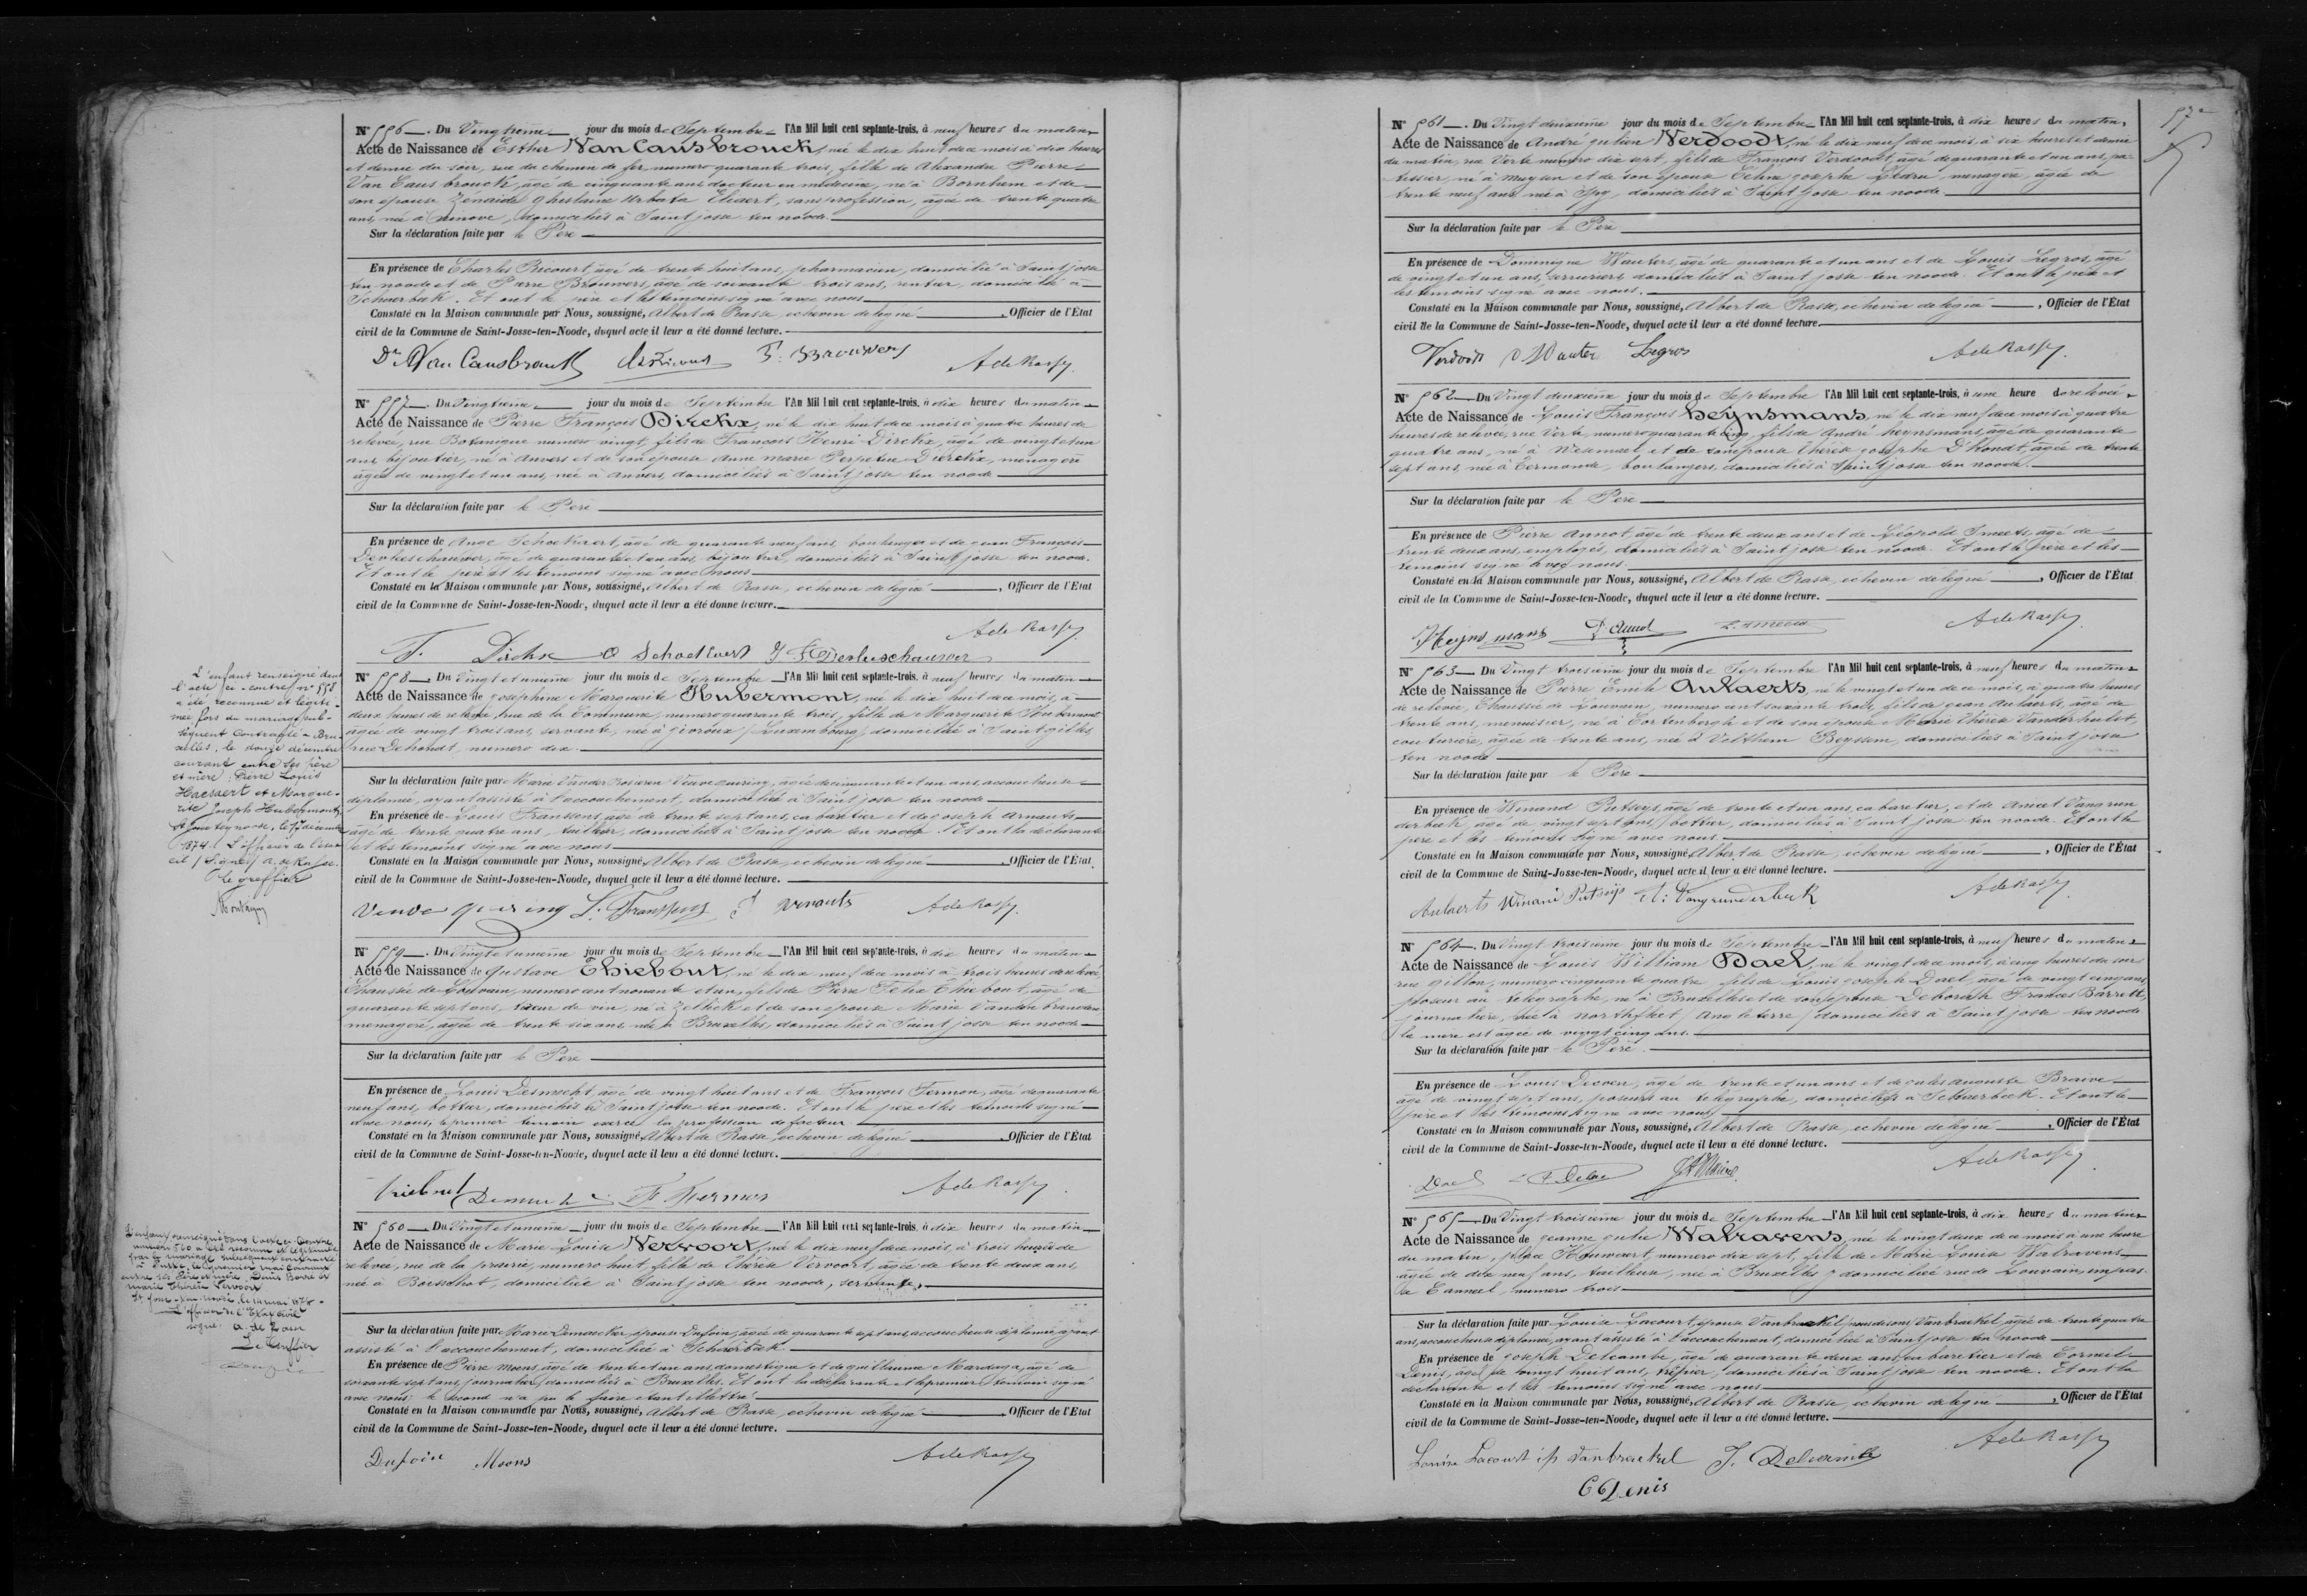 N° 556 — . Du Vingtième — jour du mois de Septembre — l'An Mil huit cent septante-trois, à neuf heures du matin —
Acte de Naissance de Esther Van Causbrouck, née le dix huit de ce mois à dix heures
et demie du soir, rue du chemin de fer numero quarante trois, fille de Alexandre Pierre
Van Causbrouck, âgé de cinquante ans docteur en médecine, né à Bornhem et de
son épouse Zénaïde Ghislaine Urbata Eliaert, sans profession, âgée de trente quatre
ans, née à Ninove, domiciliés à Saint josse ten noode.
Sur la déclaration faite par le Père —
En présence de Charles Ricourt, âgé de trente huit ans, pharmacien, domicilié à Saint josse
ten noode et de Pierre Brouwers, âgé de soixante trois ans, rentier, domicilié à
Schaerbeek. Et ont le père et les témoins signé avec nous
Constaté en la Maison communale par Nous, soussigné, Albert de Rasse, echevin délégué —, Officier de l'État
civil de la Commune de Saint-Josse-ten-Noode, duquel acte il leur a été donné lecture. —
Dr A Van Causbrouck P. Brouwers A de Rasse
N° 557 — . Du Vingtième — jour du mois de Septembre l'An Mil huit cent septante-trois, à dix heures du matin —
Acte de Naissance de Pierre François Dirckx, né le dix huit de ce mois à quatre heures de
relevée, rue Botanique numero vingt, fils de François Henri Dirckx, âgé de vingt et un
ans, bijoutier, né à Anvers et de son épouse Anne Marie Perpétue Dierckx, menagere
âgée de vingt et un ans, née à Anvers, domiciliés à Saint josse ten noode —
Sur la déclaration faite par le Père —
En présence de Ange Schockaert, âgé de quarante neuf ans, boulanger et de Jean François
Devleeschauwer, âgé de quarante et un ans, bijoutier, domiciliés à Saint josse ten noode.
Et ont le père et les témoins signé avec nous —
Constaté en la Maison communale par Nous, soussigné, Albert de Rasse, echevin délégué —, Officier de l'État
civil de la Commune de Saint-Josse-ten-Noode, duquel acte il leur a été donné lecture. —
A de Rasse
F. Dirckx A Schockaert J F Devleeschauwer
L'enfant renseigné dans
l'acte ci-contre n° 558
a été reconnue et légiti-
mée lors du mariage sub-
séquent contracté à Bru-
xelles, le douze décembre
courant entre ses père
et mère; Pierre Louis
Haesaert et Margue-
rite Joseph Hubermont.
St Josse ten noode, le 17 décembre
1874. L'officier de l'état
civil (Signé) A. de Rasse.
Le greffier
N° 558 — . Du Vingt et unième jour du mois de Septembre — l'An Mil huit cent septante-trois, à neuf heures du matin —
Acte de Naissance de Josephine Marguerite Hubermont, née le dix huit de ce mois, à
deux heures de relevée, rue de la Commune, numero quarante trois, fille de Marguerite Hubermont
âgée de vingt trois ans, servante, née à Givroux (Luxembourg) domiciliée à Saint gilles,
rue Dehondt, numero dix. —
Sur la déclaration faite par Marie Vander Veuve Quiring, âgée de cinquante et un ans, accoucheuse
diplomée, ayant assisté à l'accouchement, domiciliée à Saint josse ten noode —
En présence de Louis Franssens, âgé de trente sept ans, cabaretier et de Joseph Arnauts
âgé de trente quatre ans, tailleur, domiciliés à Saint josse ten noode. Et ont la déclarante
et les témoins signé avec nous —
Constaté en la Maison communale par Nous, soussigné, Albert de Rasse, échevin délégué —, Officier de l'État
civil de la Commune de Saint-Josse-ten-Noode, duquel acte il leur a été donné lecture. —
Veuve Quiring L. Franssens J Arnauts A de Rasse
N° 559 — . Du Vingt et unième jour du mois de Septembre — l'An Mil huit cent septante-trois, à dix heures du matin —
Acte de Naissance de Gustave Thiebout, né le dix neuf de ce mois à trois heures de relevée
Chaussée de Louvain, numero cent nonante et un, fils de Pierre Felix Thiebout, âgé de
quarante sept ans, tireur de vin, né à Zellick et de son épouse Marie Vanden branden
menagere, âgée de trente six ans, née à Bruxelles, domiciliés à Saint josse ten noode —
Sur la déclaration faite par le Père —
En présence de Louis Desmecht, âgé de vingt huit ans et de François Fermon, âgé de quarante
neuf ans, bottier, domiciliés à Saint josse ten noode. Et ont le père et les témoins signé
avec nous, le premier témoin exerce la profession de facteur
Constaté en la Maison communale par Nous, soussigné, Albert de Rasse, echevin délégué —, Officier de l'État
civil de la Commune de Saint-Josse-ten-Noode, duquel acte il leur a été donné lecture. —
A de Rasse
L'enfant renseigné dans l'acte ci-contre
numéro 560 a été reconnu et légitimé
par le mariage subséquent contracté
à le premier mai courant
entre ses père et mère, Denis Borre et
Marie Thérèse Vervoort
St Josse-ten-noode, le 14 mai 1878.
L'officier de l'État civil
signé: A. de Rasse
Le Greffier
N° 560 — . Du Vingt et unième — jour du mois de Septembre — l'An Mil huit cent septante-trois, à dix heures du matin —
Acte de Naissance de Marie Louise Vervoort, née le dix neuf de ce mois, à trois heures de
relevée, rue de la prairie, numero huit, fille de Thérèse Vervoort, âgée de trente deux ans,
née à Boisschot, domiciliée à Saint josse ten noode, servante. —
Sur la déclaration faite par Marie Demacker, épouse Dufoin, âgée de quarante sept ans, accoucheuse diplomée, ayant
assisté à l'accouchement, domiciliée à Schaerbeek. —
En présence de Pierre Moens, âgé de trente et un ans, domestique et de Guillaume Mardaga, âgé de
soixante sept ans, journalier, domiciliés à Bruxelles. Et ont la déclarante et le premier témoin signé
avec nous; le second n'a pu le faire étant illettré.
Constaté en la Maison communale par Nous, soussigné, Albert de Rasse, echevin délégué —, Officier de l'État
civil de la Commune de Saint-Josse-ten-Noode, duquel acte il leur a été donné lecture. —
Dufoin Moens A de Rasse
N° 561 — . Du Vingt deuxième jour du mois de Septembre — l'An Mil huit cent septante-trois, à dix heures du matin.
Acte de Naissance de André Julien Verdoodt, né le dix neuf de ce mois, à six heures et demie
du matin, rue Verte numero dix sept, fils de François Verdoodt, âgé de quarante et un ans, pa-
tissier, né à Muysen et de son épouse Celine Josephe Ledru, menagere, âgée de
trente neuf ans, née à Spy, domiciliés à Saint josse ten noode —
Sur la déclaration faite par le Père —
En présence de Dominique Wauters, âgé de quarante et un ans et de Louis Legros, âgé
de vingt et un ans, serruriers domiciliés à Saint josse ten noode. Et ont le père et
les témoins signé avec nous. —
Constaté en la Maison communale par Nous, soussigné, Albert de Rasse, echevin délégué —, Officier de l'État
civil de la Commune de Saint-Josse-ten-Noode, duquel acte il leur a été donné lecture. —
Verdoodt D Wauters Legros A de Rasse
N° 562 — Du Vingt deuxième jour du mois de Septembre l'An Mil huit cent septante-trois, à une heure de relevée.
Acte de Naissance de Louis François Heynsmans, né le dix neuf de ce mois à quatre
heures de relevée, rue Verte numero quarante cinq, fils de André Heynsmans, âgé de quarante
quatre ans, né à Wesemael et de son épouse Thérèse Josephe D'hondt, âgée de trente
sept ans, née à Termonde, boulangers, domiciliés à Saint josse ten noode. —
Sur la déclaration faite par le Père —
En présence de Pierre Annot, âgé de trente deux ans et de Léopold Smeets, âgé de
trente deux ans, employés, domiciliés à Saint josse ten noode. Et ont le père et les
témoins signé avec nous. —
Constaté en la Maison communale par Nous, soussigné, Albert de Rasse, echevin délégué —, Officier de l'État
civil de la Commune de Saint-Josse-ten-Noode, duquel acte il leur a été donné lecture. —
Heynsmans P. Annot L. Smeets A de Rasse
N° 563 — Du Vingt troisième jour du mois de Septembre l'An Mil huit cent septante-trois, à neuf heures du matin —
Acte de Naissance de Pierre Emile Aulaerts, né le vingt et un de ce mois, à quatre heures
de relevée, Chaussée de Louvain, numero cent soixante trois, fils de Jean Aulaerts, âgé de
trente ans, menuisier, né à Cortenbergh et de son épouse Marie Thérèse Vanderhulst,
couturière, âgée de trente ans, née à Velthem Beyssem, domiciliés à Saint josse
ten noode —
Sur la déclaration faite par le Père —
En présence de Winand Putseys, âgé de trente et un ans, cabaretier, et de Anicet Vangrun
derbeek, âgé de vingt sept ans, bottier, domiciliés à Saint josse ten noode. Et ont le
père et les témoins signé avec nous. —
Constaté en la Maison communale par Nous, soussigné, Albert de Rasse, échevin délégué —, Officier de l'État
civil de la Commune de Saint-Josse-ten-Noode, duquel acte il leur a été donné lecture. —
Aulaerts Winand Putseys A: Vangrunderbeek A de Rasse
N° 564 — . Du Vingt troisième jour du mois de Septembre — l'An Mil huit cent septante-trois, à neuf heures du matin —
Acte de Naissance de Louis William Dael, né le vingt de ce mois, à cinq heures du soir
rue gillon, numero cinquante quatre fils de Louis Joseph Dael, âgé de vingt cinq ans,
poseur au télégraphe, né à Bruxelles et de son épouse Deborah Frances Barrett,
journalière, née à Northfleet (Angleterre) domiciliés à Saint josse ten noode
la mère est âgée de vingt cinq ans. —
Sur la déclaration faite par le Père. —
En présence de Louis Decoen, âgé de trente et un ans et de Jules Auguste Braive
âgé de vingt sept ans, poseurs au télégraphe, domiciliés à Schaerbeek. Et ont le
père et les témoins signé avec nous
Constaté en la Maison communale par Nous, soussigné, Albert de Rasse, echevin délégué —, Officier de l'État
civil de la Commune de Saint-Josse-ten-Noode, duquel acte il leur a été donné lecture. —
Dael A de Rasse
N° 565 — Du Vingt troisième jour du mois de Septembre — l'An Mil huit cent septante-trois, à dix heures du matin —
Acte de Naissance de Jeanne Julie Walravens, née le vingt deux de ce mois à une heure
du matin, place Houwaert, numero dix sept, fille de Marie Louise Walravens
âgée de dix neuf ans, tailleuse, née à Bruxelles y domiciliée rue de Louvain, impas-
se numero trois —
Sur la déclaration faite par Louise Lacourt, épouse Vanbraekel, nous disons Vanbraekel, âgée de trente quatre
ans, accoucheuse diplomée, ayant assisté à l'accouchement, domiciliée à Saint josse ten noode —
En présence de Joseph Delcambe, âgé de quarante deux ans, cabaretier et de Corneil
Denis, âgé de vingt huit ans, domiciliés à Saint josse ten noode. Et ont la
déclarante et les témoins signé avec nous —
Constaté en la Maison communale par Nous, soussigné, Albert de Rasse, echevin délégué —, Officier de l'État
civil de la Commune de Saint-Josse-ten-Noode, duquel acte il leur a été donné lecture. —
Louise Lacourt ép Vanbraekel J. Delcambe A de Rasse
C Denis